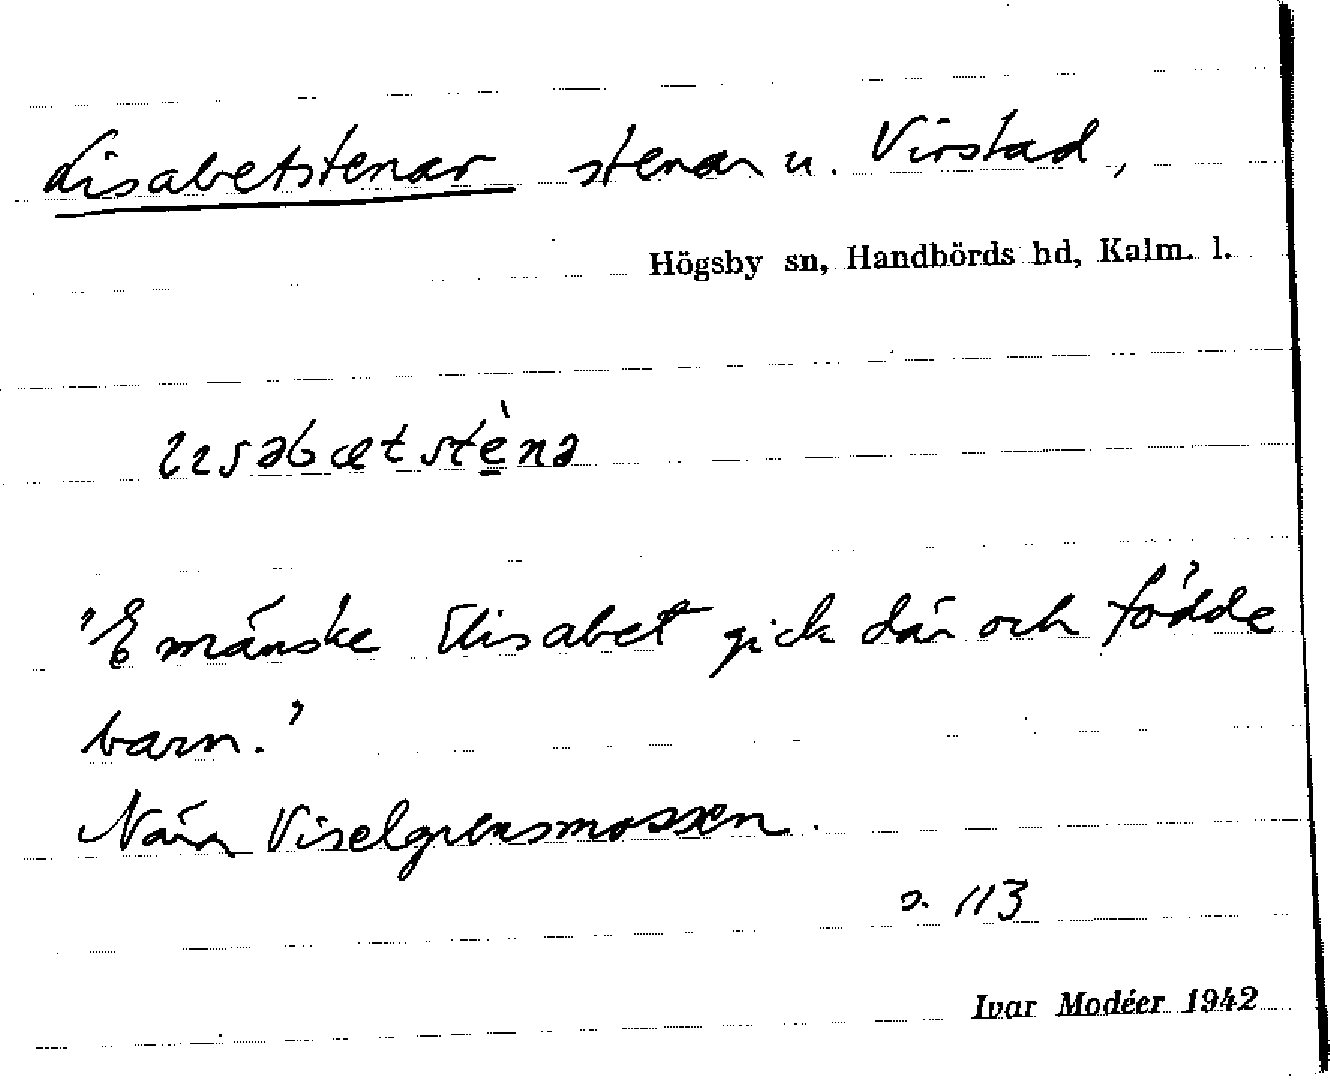 Lisabetstenar stenar u. Virstad,
Högsby sn, Handbörds hd, Kalm. l.
lısəbætstènə
"E mänske Elisabet gick där och födde
barn."
Nära Viselgrensmossen.
s. 113
Ivar Modéer 1942